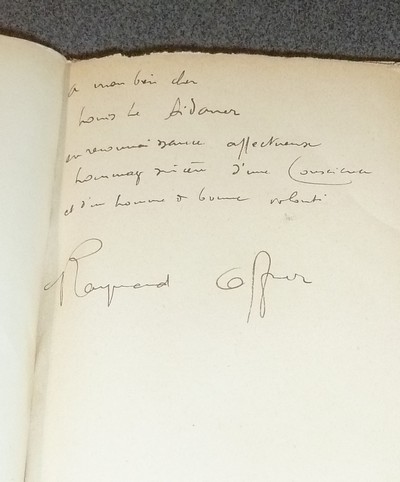 à mon bien cher
Louis Le Sidaner
en reconnaissance affectueuse
hommage sincère d'une Conscience
et d'un homme de bonne volonté
Raymond Offner